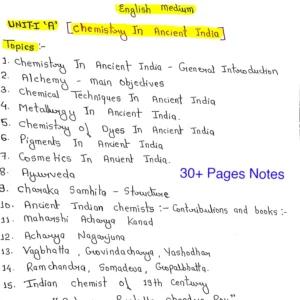 English medium
UNIT:I 'A' [Chemistry In Ancient India]
Topics :-
1. Chemistry In Ancient India - General Introduction
2. Alchemy - main objectives
3. Chemical Techniques In Ancient India
4. Metallurgy In Ancient India.
5. Chemistry of Dyes In Ancient India
6. Pigments In Ancient India
7. Cosmetics In Ancient India.
8. Ayurveda
30+ Pages Notes
9. Charaka Samhita - Structure
10. Ancient Indian chemists :- Contributions and books :-
11. Maharshi Acharya Kanad
12. Acharya Nagarjuna
13. Vagbhatta, Govindacharya, Yashodhar
14. Ramchandra, Somadeva, Gopalbhatta.
15. Indian chemist of 19th Century